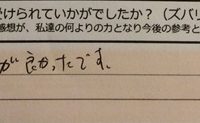 受けられていかがでしたか？（ズバリ
感想が、私達の何よりの力となり今後の参考と
が良かったです。